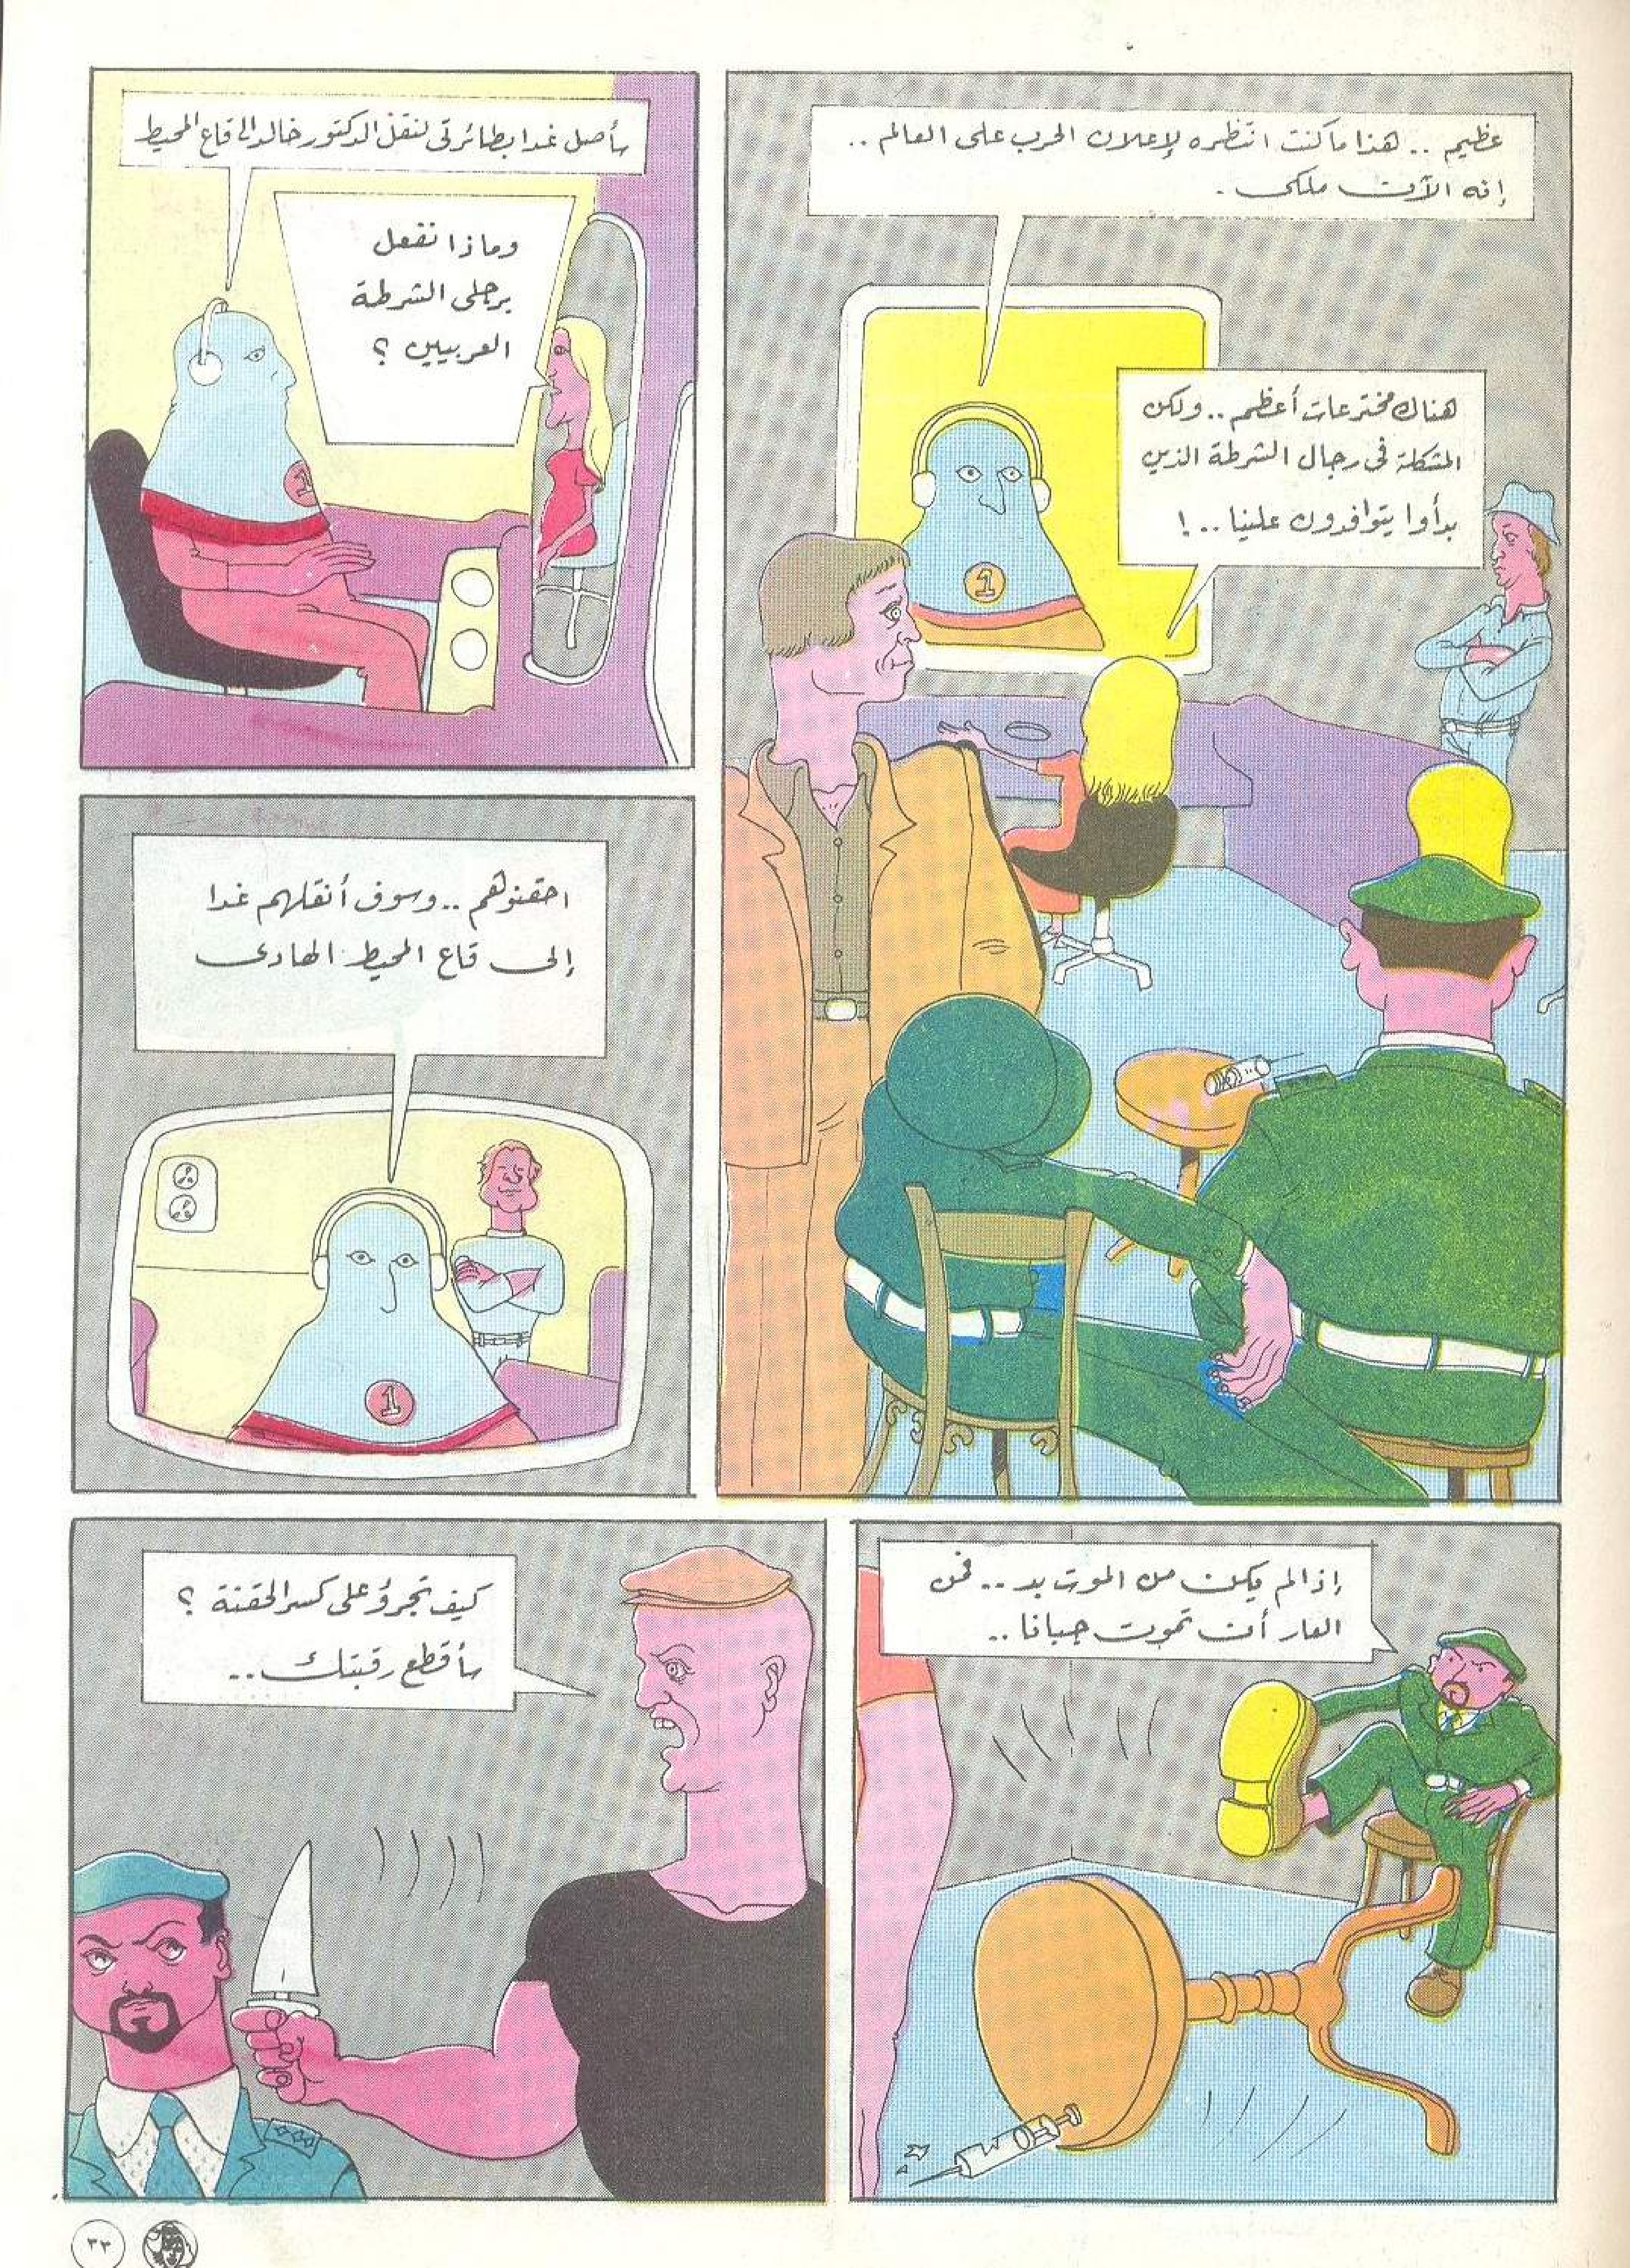 عظيم .. هذا ما كنت انتظره لإعلان الحرب على العالم ..
إنه الآن ملكى .
هناك مخترعات أعظم .. ولكن
المشكلة فى رجال الشرطة الذين
بدأوا يتوافدون علينا .. !
1
سأصل غدا بطائرتى لنقل الدكتور خالد الى قاع المحيط
وماذا نفعل
برجلى الشرطة
العربيين ؟
1
احقنوهم .. وسوف أنقلهم غدا
إلى قاع المحيط الهادى
1
إذا لم يكن من الموت بد .. فمن
العار أن تموت جبانا ..
كيف تجرؤ على كسر الحقنة ؟
سأقطع رقبتك ..
٣٣